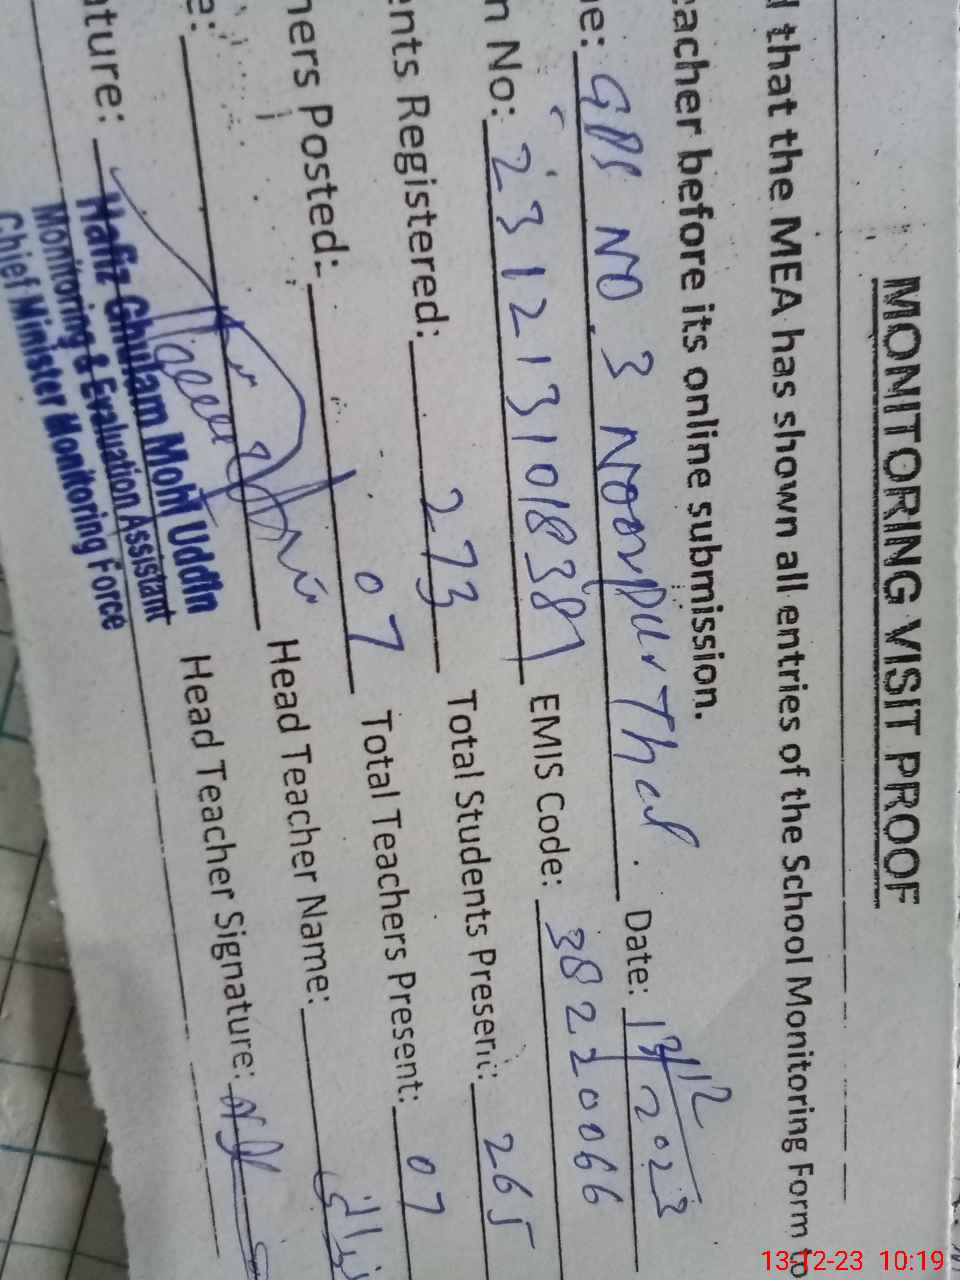 MONITORING VISIT PROOF
that the MEA has shown all entries of the School Monitoring Form to
eacher before its online submission.
e: GPS NO. 3 Noorpur Thal. Date: 13/12 2023
n No: 2312131018381 EMIS Code: 38220066
ents Registered: 273 Total Students Present: 265
hers Posted: 07 Total Teachers Present: 07
e: Head Teacher Name:
ature: Head Teacher Signature:
Hafiz Ghulam Mohi Uddin
Monitoring & Evaluation Assistant
Chief Minister Monitoring Force
13-12-23 10:19